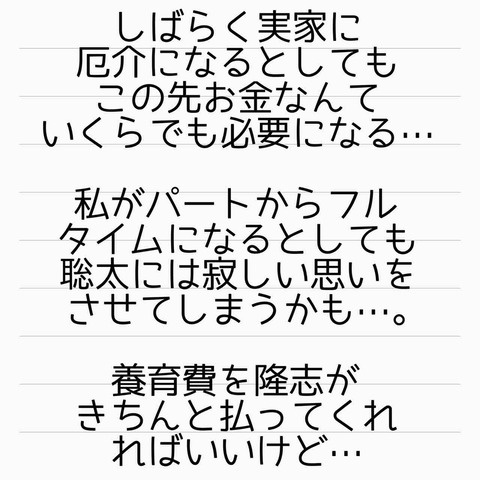 しばらく実家に
厄介になるとしても
この先お金なんて
いくらでも必要になる…
私がパートからフル
タイムになるとしても
聡太には寂しい思いを
させてしまうかも…。
養育費を隆志が
きちんと払ってくれ
ればいいけど…